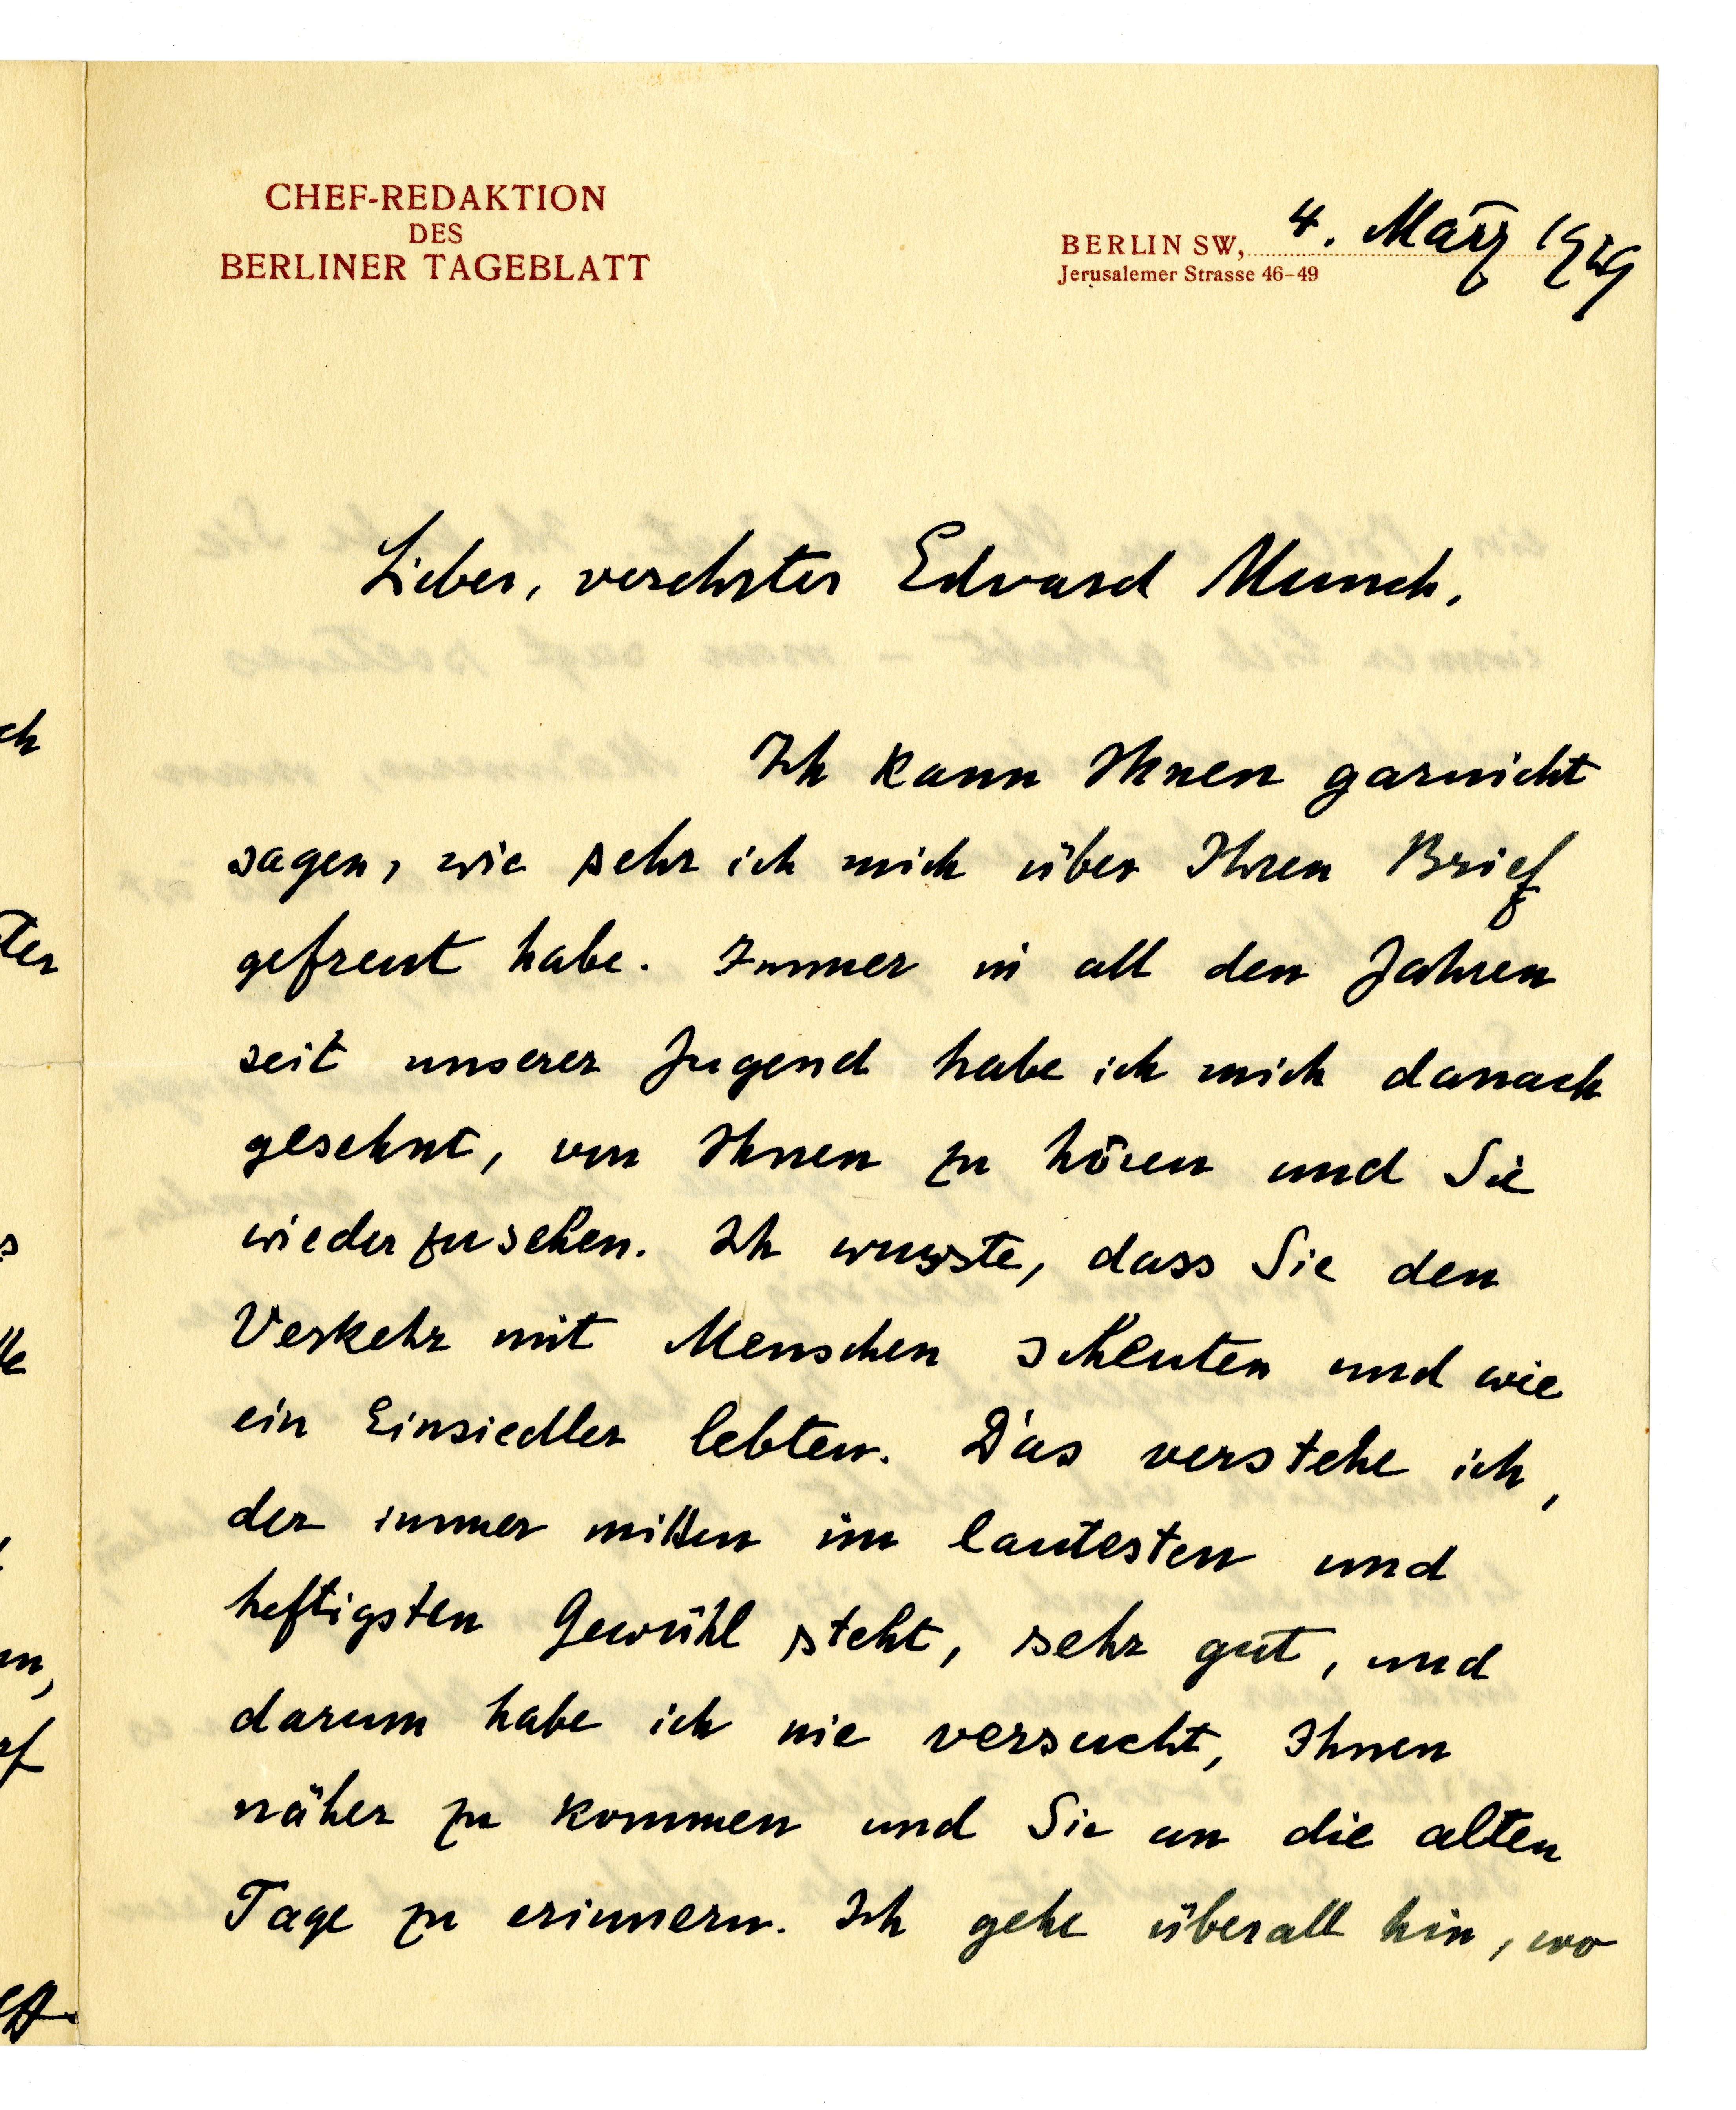 CHEF-REDAKTION
DES
BERLINER TAGEBLATT
BERLIN SW, 4. März 1929
Jerusalemer Strasse 46-49
Lieber, verehrter Edvard Munch,
Ich kann Ihnen garnicht
sagen, wie sehr ich mich über Ihren Brief
gefreut habe. Immer in all den Jahren
seit unserer Jugend habe ich mich danach
gesehnt, von Ihnen zu hören und Sie
wiederzusehen. Ich wusste, dass Sie den
Verkehr mit Menschen scheuten und wie
ein Einsiedler lebten. Das verstehe ich,
der immer mitten im lautesten und
heftigsten Gewühl steht, sehr gut, und
darum habe ich nie versucht, Ihnen
näher zu kommen und Sie an die alten
Tage zu erinnern. Ich gehe überall hin, wo